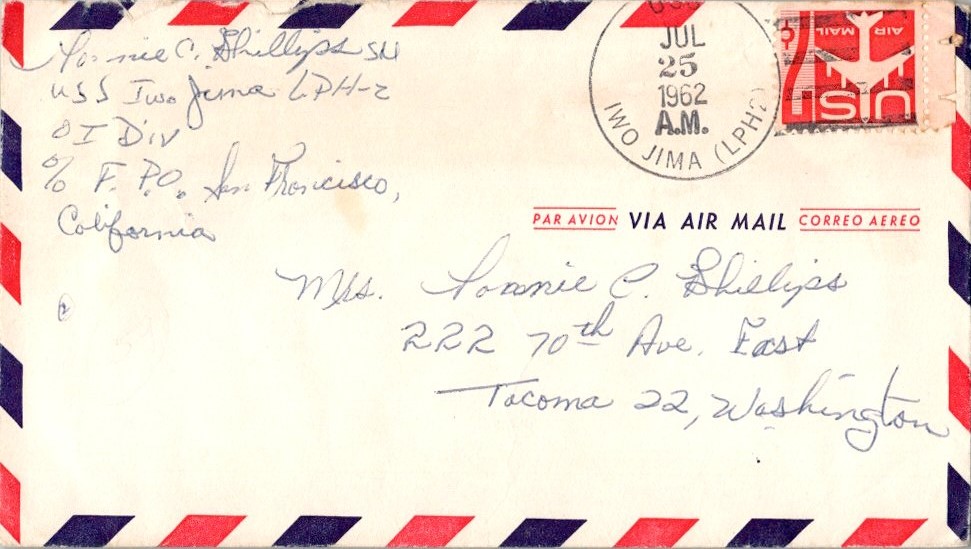 Lonnie C. Phillips SN
USS Iwo Jima LPH-2
OI Div
% F.P.O. San Francisco,
California
JUL
25
1962
A.M.
IWO JIMA (LPH2)
AIR
MAIL
US
PAR AVION VIA AIR MAIL CORREO AEREO
Mrs. Lonnie C. Phillips
222 70th Ave. East
Tacoma 22, Washington